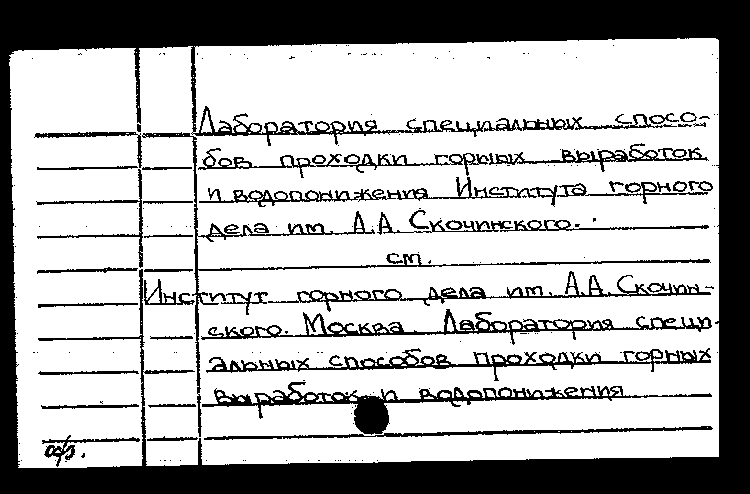 Лаборатория специальных спосо-
бов проходки горных выработок
и водопонижения Института горного
дела им. А.А. Скочинского.
см.
Институт горного дела им. А.А. Скочин-
ского. Москва. Лаборатория специ-
альных способов проходки горных
выработок и водопонижения